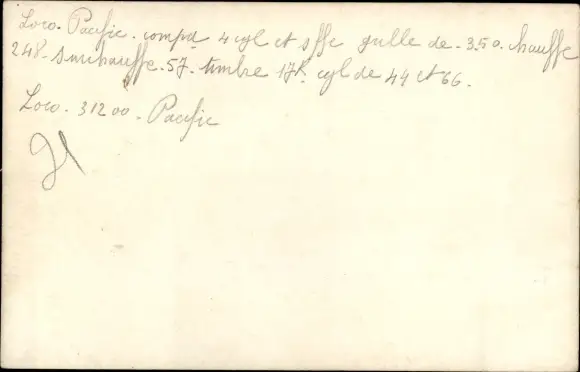 Loco. Pacific. compd 4 cyl et sffe grille de - 3.50. chauffe
248. surchauffe. 57. timbre 17K. cyl de 44 et 66.
Loco. 31200. Pacific